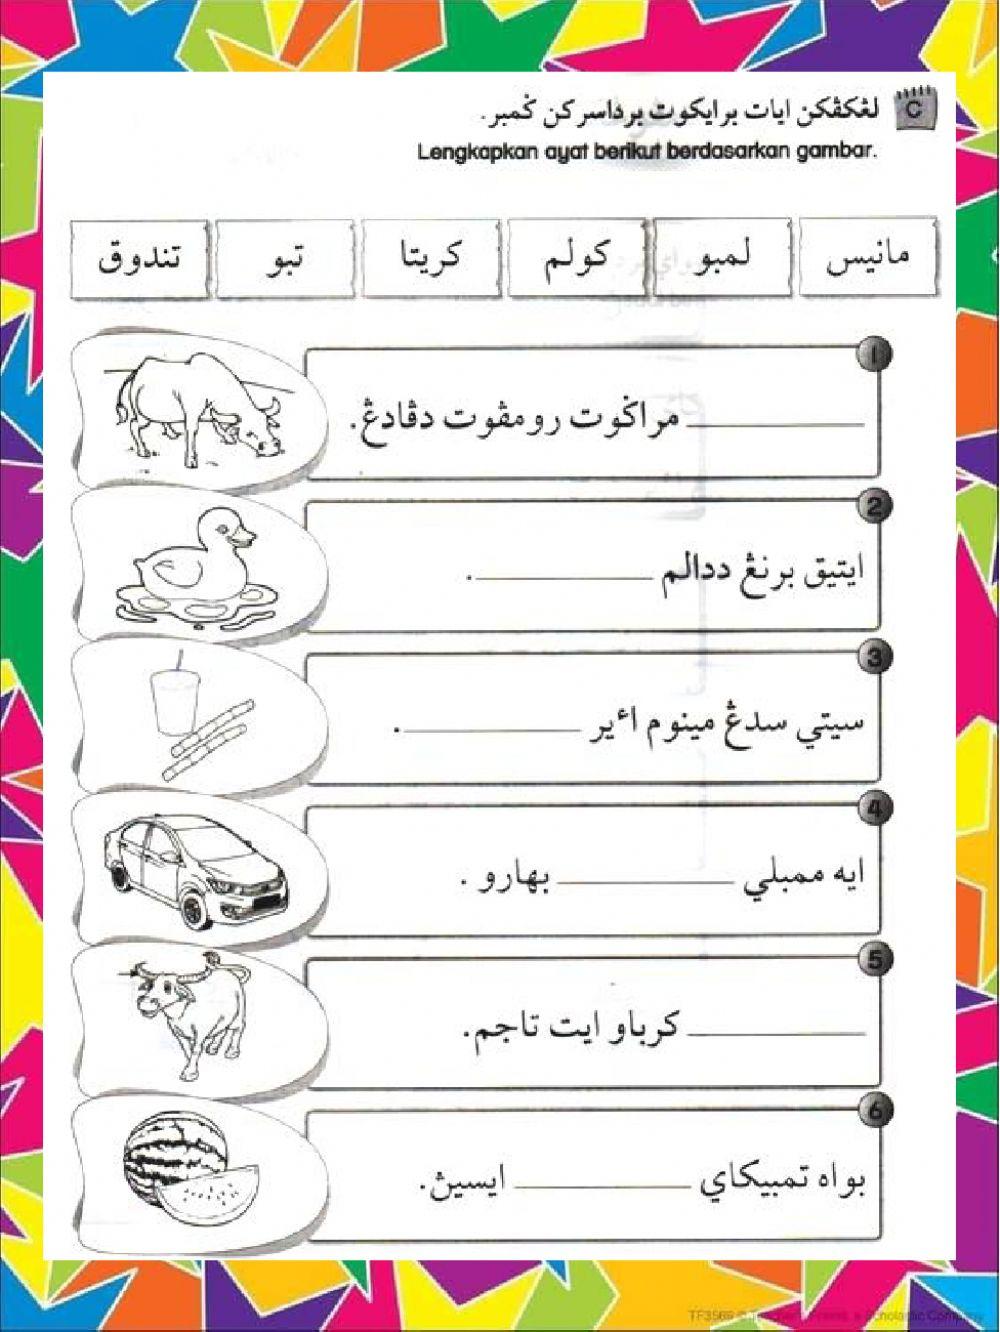 C
لڠکڤکن ايات برايکوت برداسرکن ݢمبر.
Lengkapkan ayat berikut berdasarkan gambar.
مانيس لمبو كولم كريتا تبو تندوق
1
__________ مراݢوت رومڤوت دڤادڠ.
2
ايتيق برنڠ ددالم __________.
3
سيتي سدڠ مينوم اءير __________.
4
ايه ممبلي __________ بهارو .
5
__________ کرباو ايت تاجم.
6
بواه تمبيکاي __________ ايسيڽ.